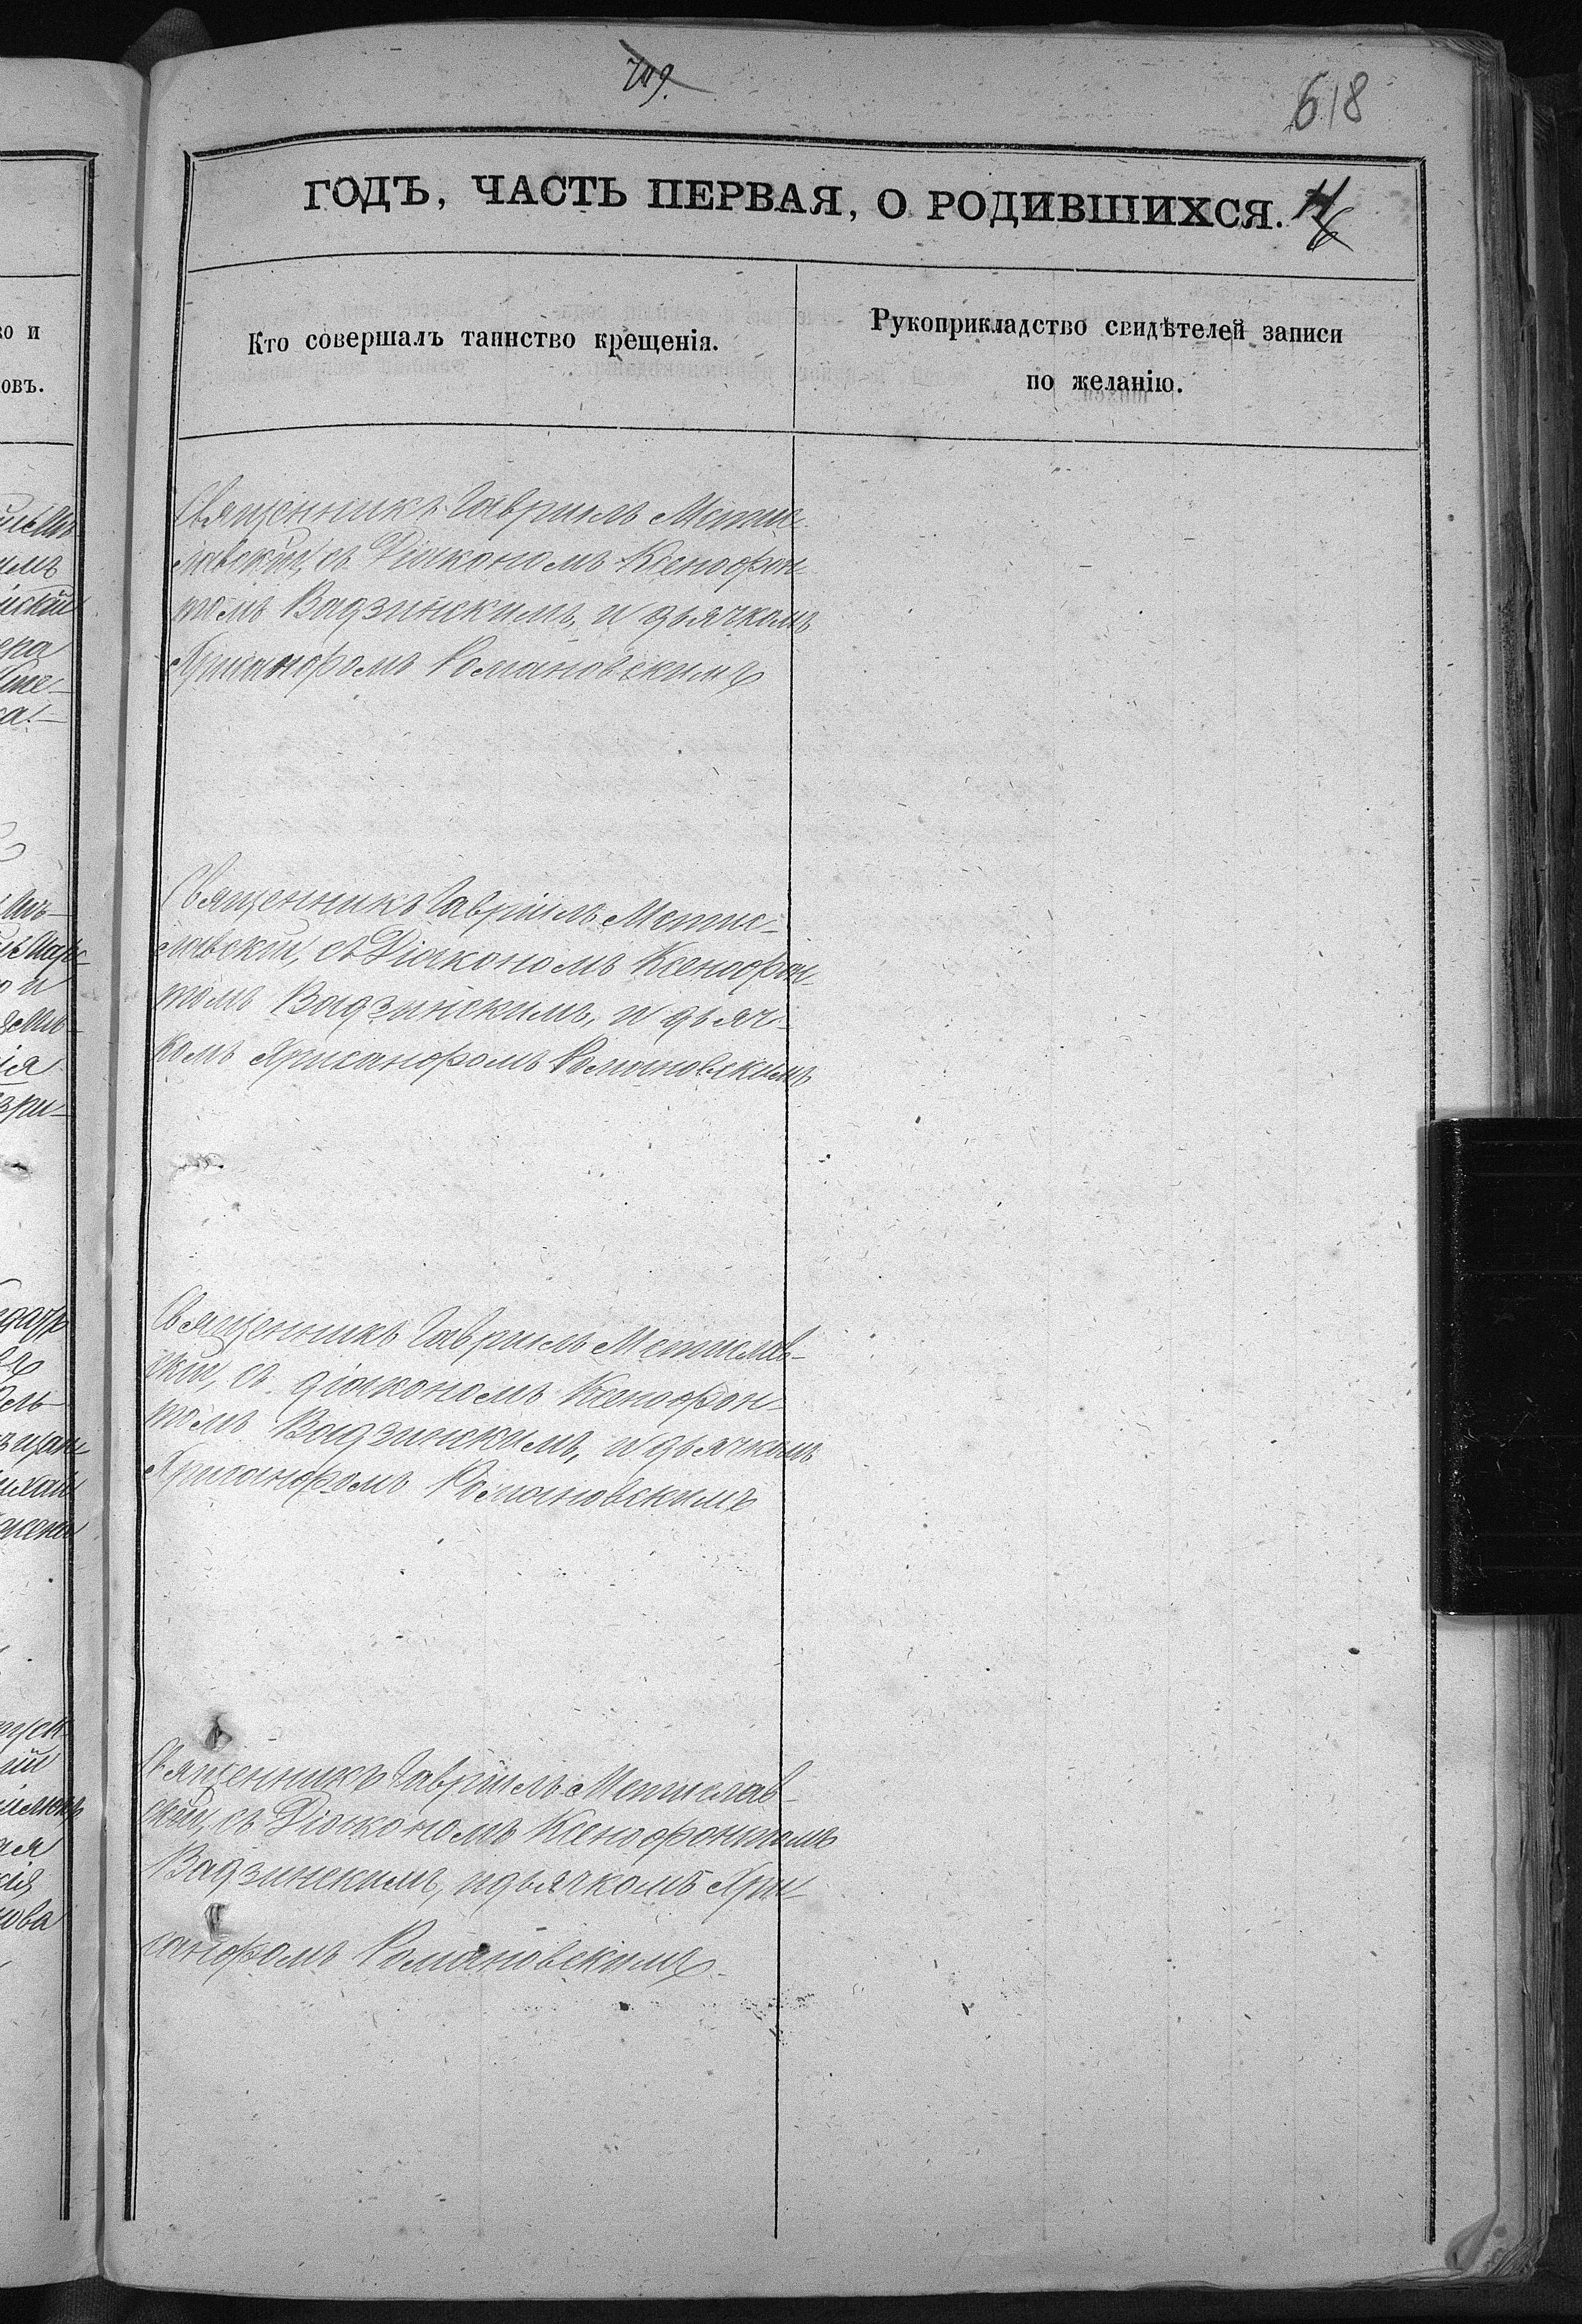 709.
618
ГОДЪ, ЧАСТЬ ПЕРВАЯ, О РОДИВШИХСЯ.
Кто совершалъ таинство крещенія.
Рукоприкладство свидѣтелей записи
по желанію.
Священникъ Гавріилъ Мстис-
лавскій, съ Діакономъ Ксенофон-
томъ Вадзинскимъ, и дьячкомъ
Хрисанфомъ Романовскимъ
Священникъ Гавріилъ Мстис-
лавскій, съ Діакономъ Ксенофон-
томъ Вадзинскимъ, и дьяч-
комъ Хрисанфомъ Романовскимъ
Священникъ Гавріилъ Мстислав-
скій, съ діакономъ Ксенофон-
томъ Вадзинскимъ, и дьячкомъ
Хрисанфомъ Романовскимъ
Священникъ Гавріилъ Мстислав-
скій, съ Діакономъ Ксенофонтомъ
Вадзинскимъ, и дьячкомъ Хри-
санфомъ Романовскимъ